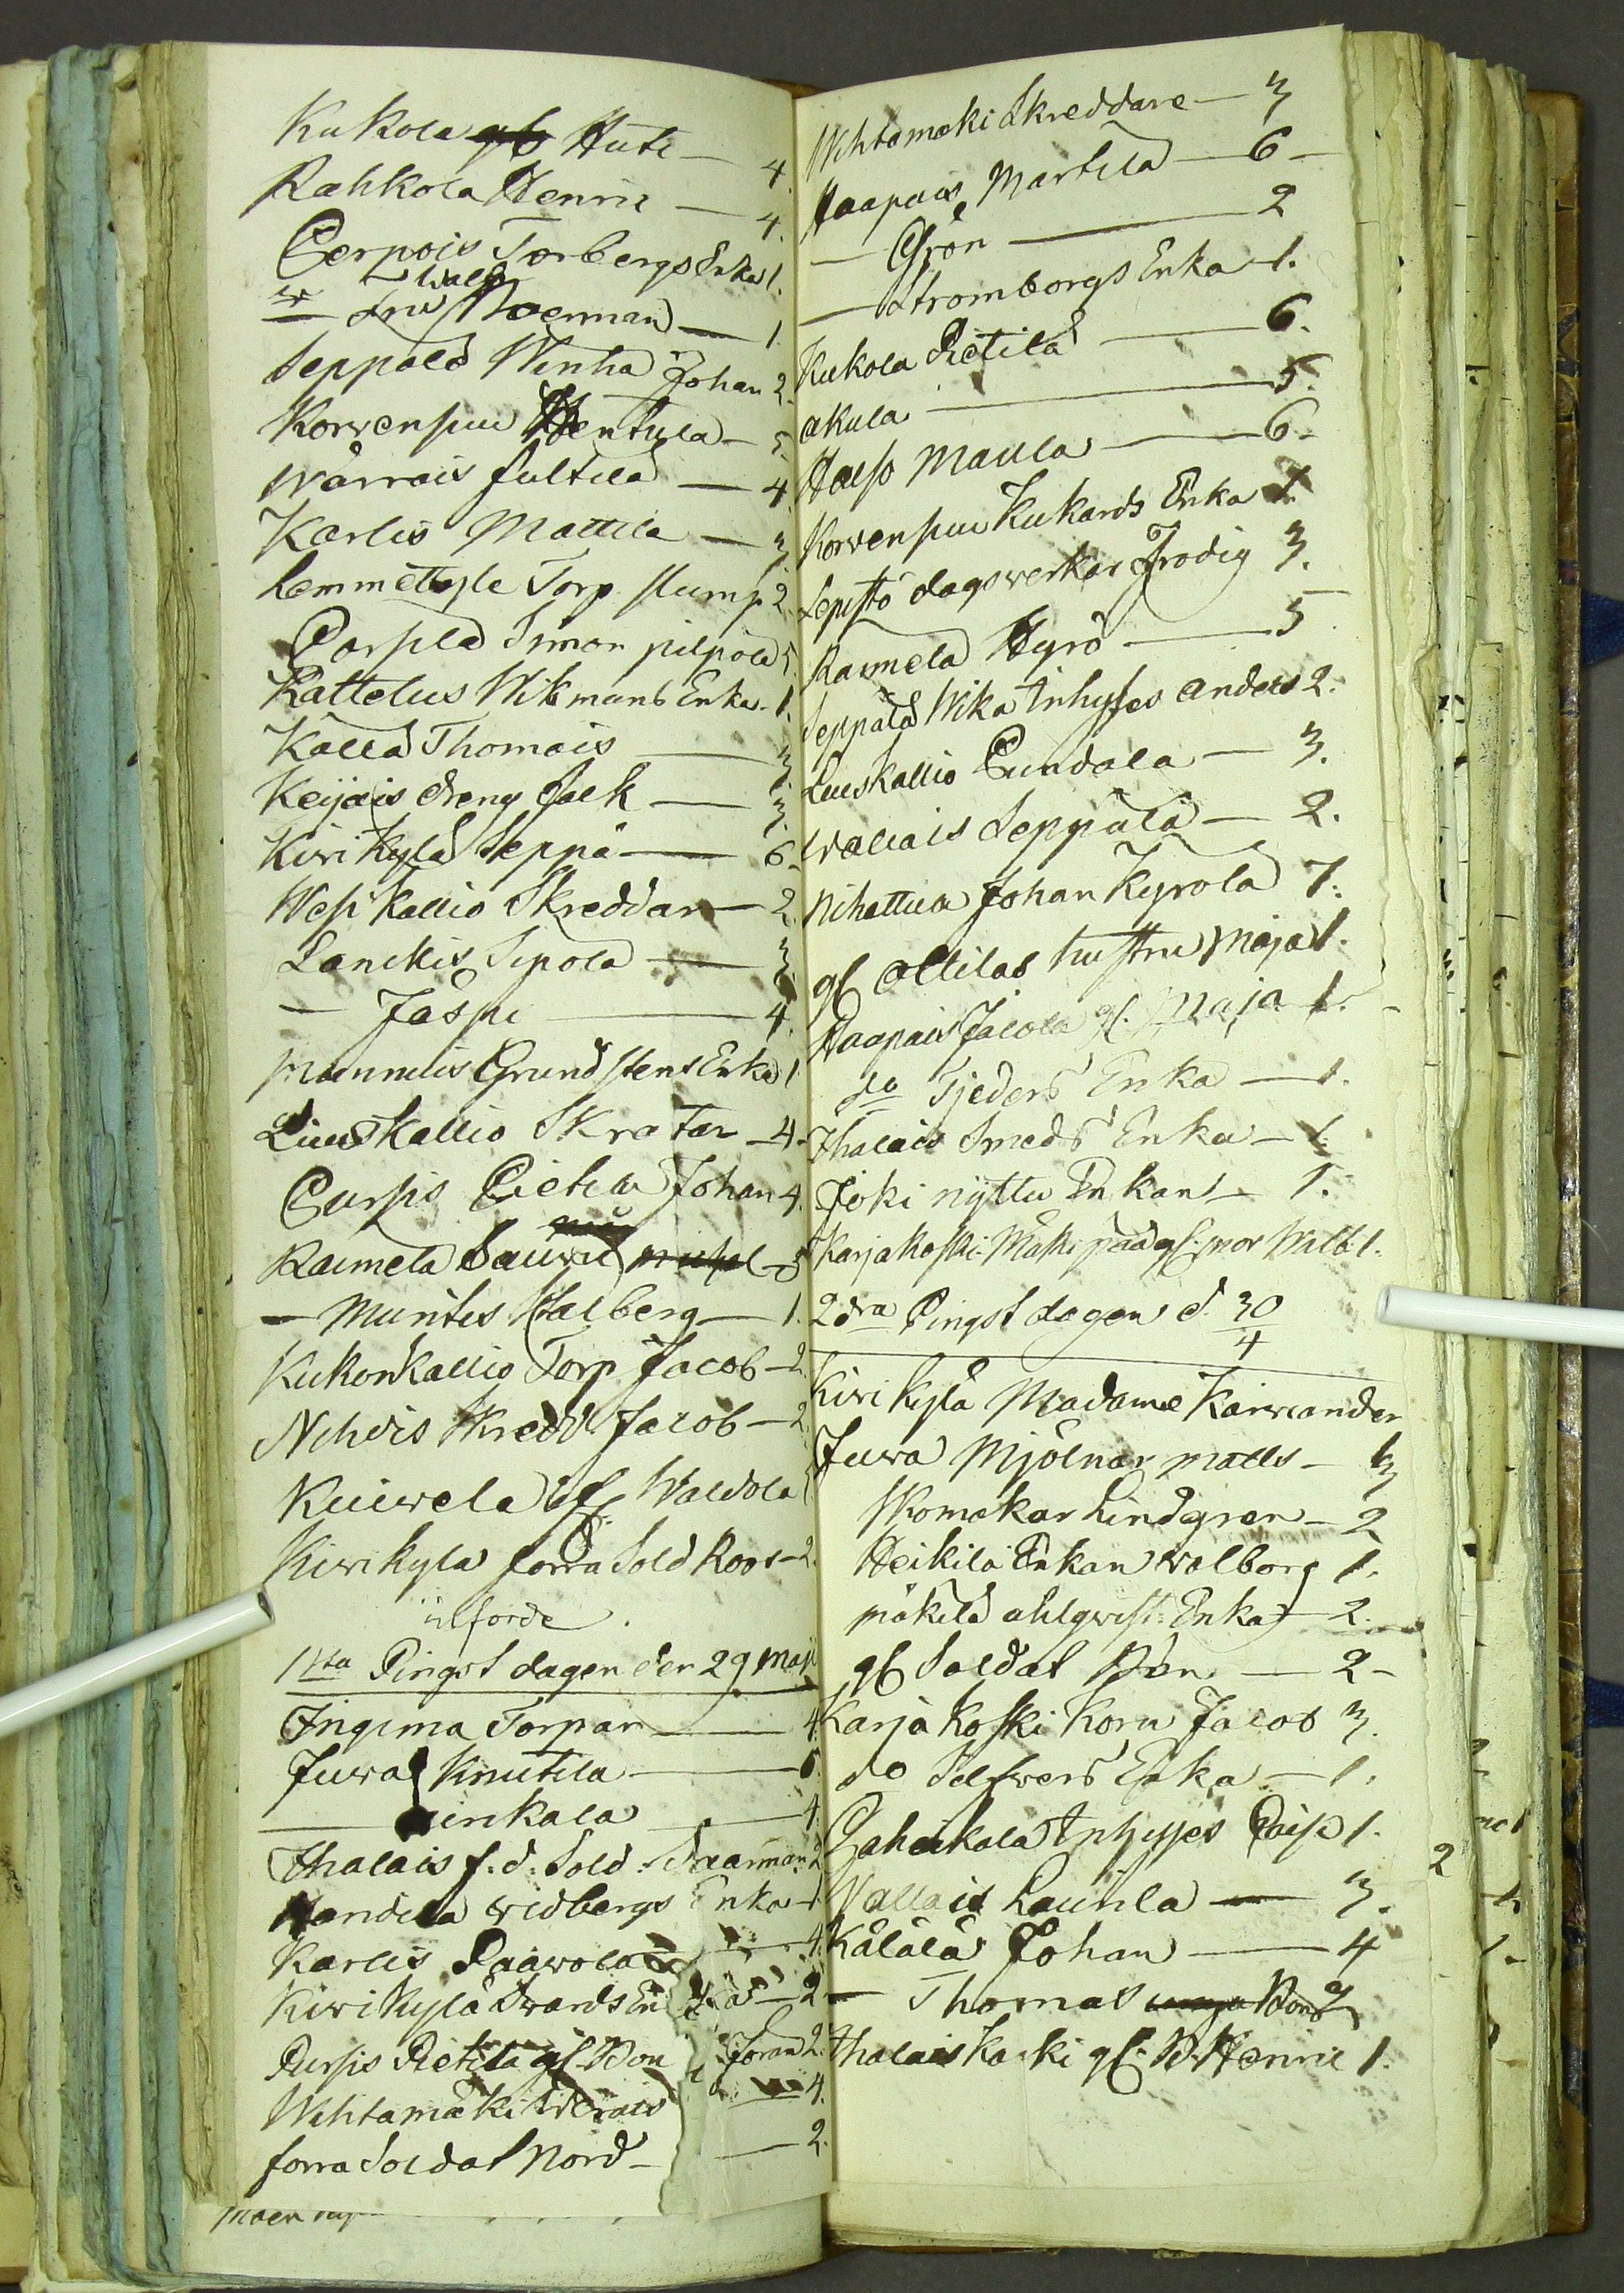 Kukola gl Huti — 4.
Rahkola Henric — 4.
Perpois Torbergs Enka 1.
Seppälä Winha Johan 2.
Korvenpuu Hentula — 5
Wärrais Sultila — 4
Karlis Mattila — 3
Lemmettyle Torp Stump 2.
Simon pilpola 5
Kattelus Wikmans Enka. 1.
Källä Thomais — 3
Keijais dreng Isak — 3.
Kirikylä Seppä — 6
Wesikallio Skreddar — 2.
Lanckis Sipola — 3
— Jäspi — 4.
Mannuis Grundstens Enka 1
Liuskallio Skratar — 4.
Pursis Pietila Johan 4.
Raimela Sauwu
— Muntis Halberg — 1.
Kukonkallio Torp Jacob — 2
Nihois Skredd Jacob — 2
Kuiwela gl Waldola
Kirikyla förra Sold Roos — 2.
utförde.
1sta Pingst dagen den 29 Maji
Ingima Torpar — 4.
Juwa Knutila — 6.
— inkala — 4.
Thalais f. d. Sold: Saarman 2
Mandila widbergs Enka — 1
Karlis Paawola — 4.
Kirikylä Swards En
Pursis Pietilä gl Bon Joran 2.
Wihtamäki — 4.
förra Soldat Nord — 2.
Wihtamäki Skreddare — 3
Haapais Martila — 6 —
— Grön — 2
— Stromborgs Enka — 1.
Kukola Pietilä — 6.
akula — 5.
Halso Maula — 6 —
Korvenpuu Kukards Enka 1.
Lepistö dagsverkar Frodig 3.
Raumela Hyrö — 5.
Seppälä Wika Inhyses Anders 2.
Liuskallio Pundola — 3.
Wallais Seppälä — 2.
Nihattula Johan Kyrola 7.
gl Ollilas hustru Maja 1.
Haapais Jacola gl. Maja 1.
do Tjeders Enka — 1.
Thalais Smeds Enka — 1.
Joki nyttu Enkan — 1.
Karjakoski Mäki pää gl: mor Walb. 1.
2dra Pingst dagen d. 30
4
Kirikylä Madame Karwander
Juwa Mjölnar Matts — 3
Skomakar Lindgren — 2
Heikilä Enkan Walborg 1.
Mäkilä ahlqwist: Enka — 2.
gl Soldat Pön — 2 —
Karjakoski Koru Jacob 3.
do Selfwers Enka — 1.
Zahakala Inhyses 1.
Wallais Launla — 3.
Källälä Johan — 4
— Thomas Bon 2
Thalais Kaski gl: B. Henric 1.